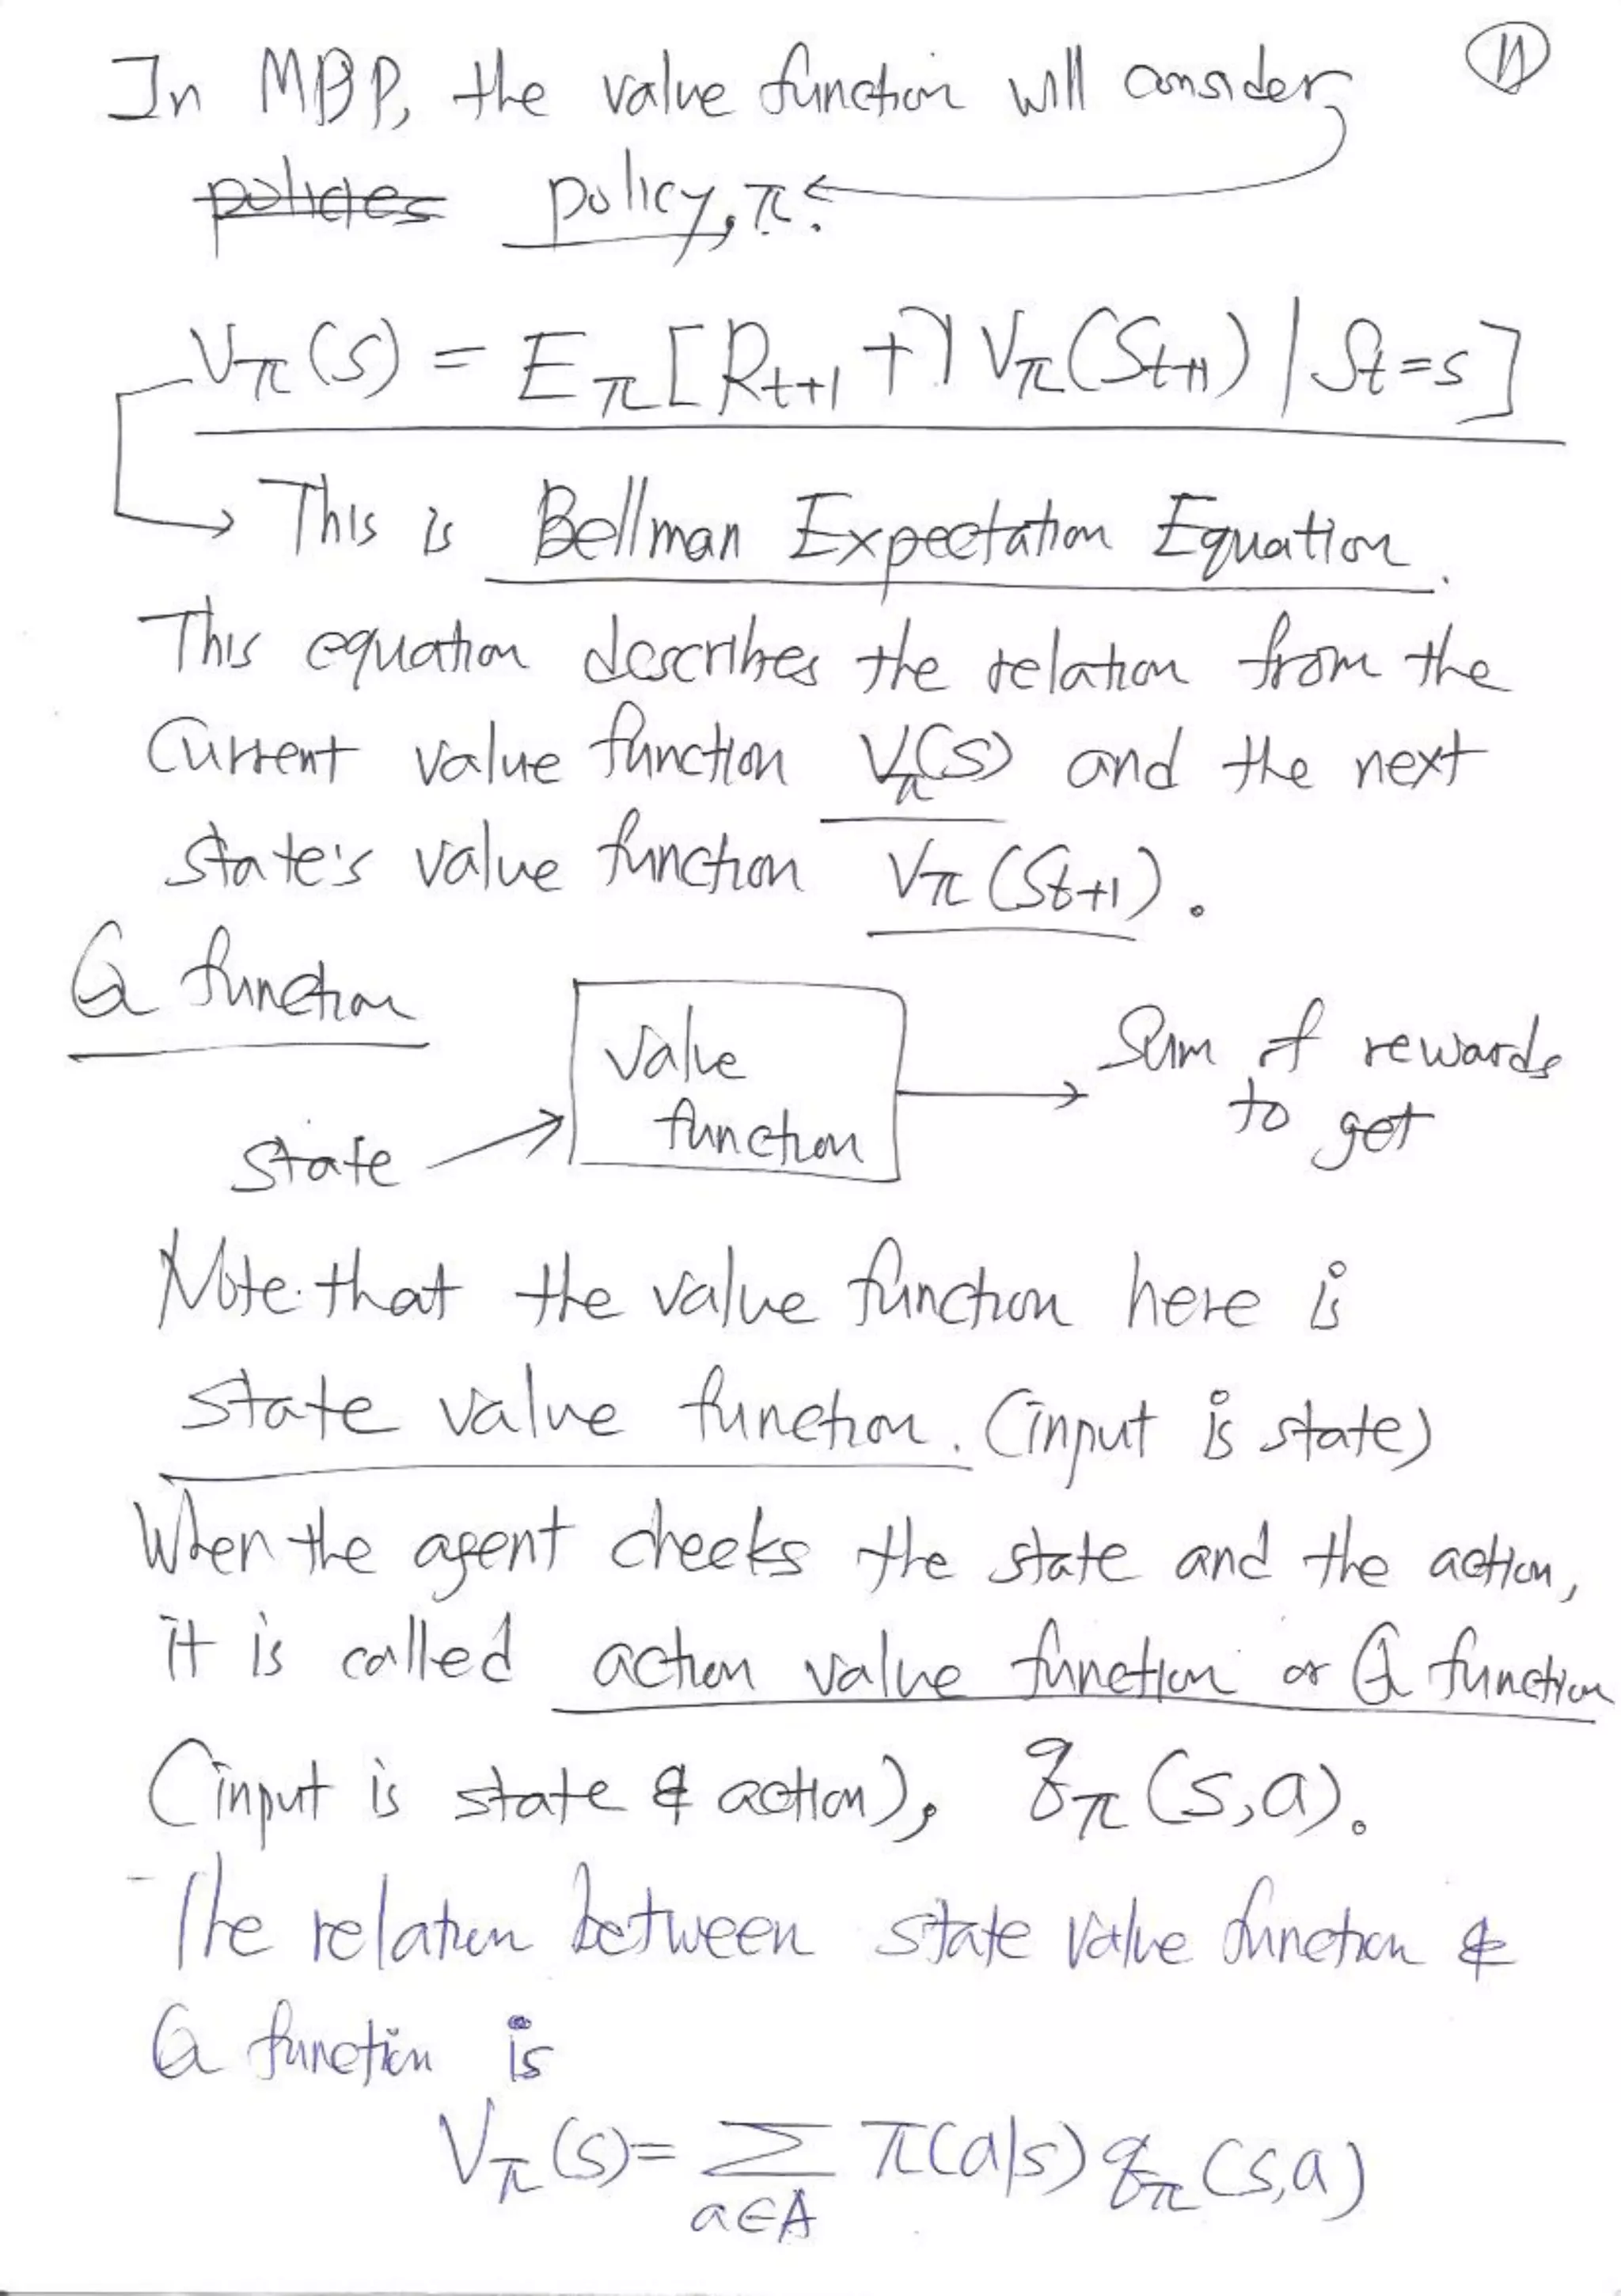 In MDP, the value function will consider
⑪
policies policy, π.
Vπ(s) = Eπ[Rt+1 + γVπ(St+1) | St=s]
This is Bellman Expectation Equation.
This equation describes the relation from the
Current value function Vπ(s) and the next
state's value function Vπ(St+1).
Q function
Value
function
Sum of rewards
to get
state
Note that the value function here is
state value function. (input is state)
When the agent checks the state and the action,
it is called action value function or Q function
(input is state & action), qπ(s,a).
The relation between state value function &
Q function is
Vπ(s) = Σ π(a|s) qπ(s,a)
a∈A